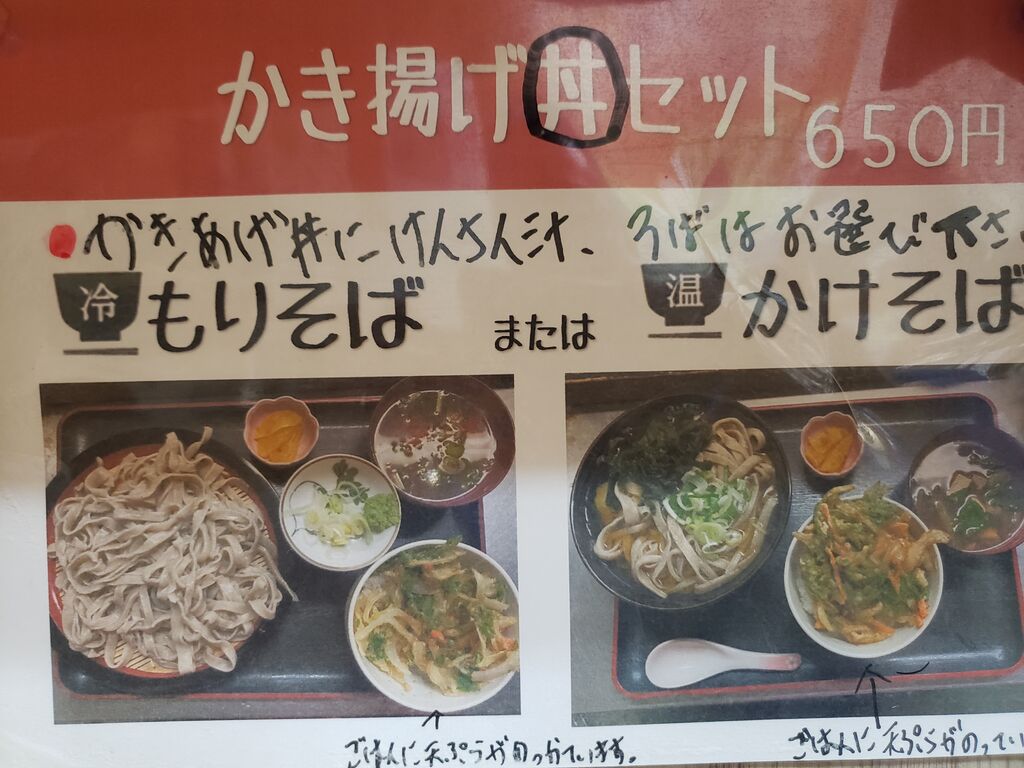 かき揚げ丼セット 650円
かきあげ丼にけんちん汁、そばはお選び下さ
冷 もりそば または 温 かけそば
ごはんに天ぷらがのっています。 ごはんに天ぷらがのってい